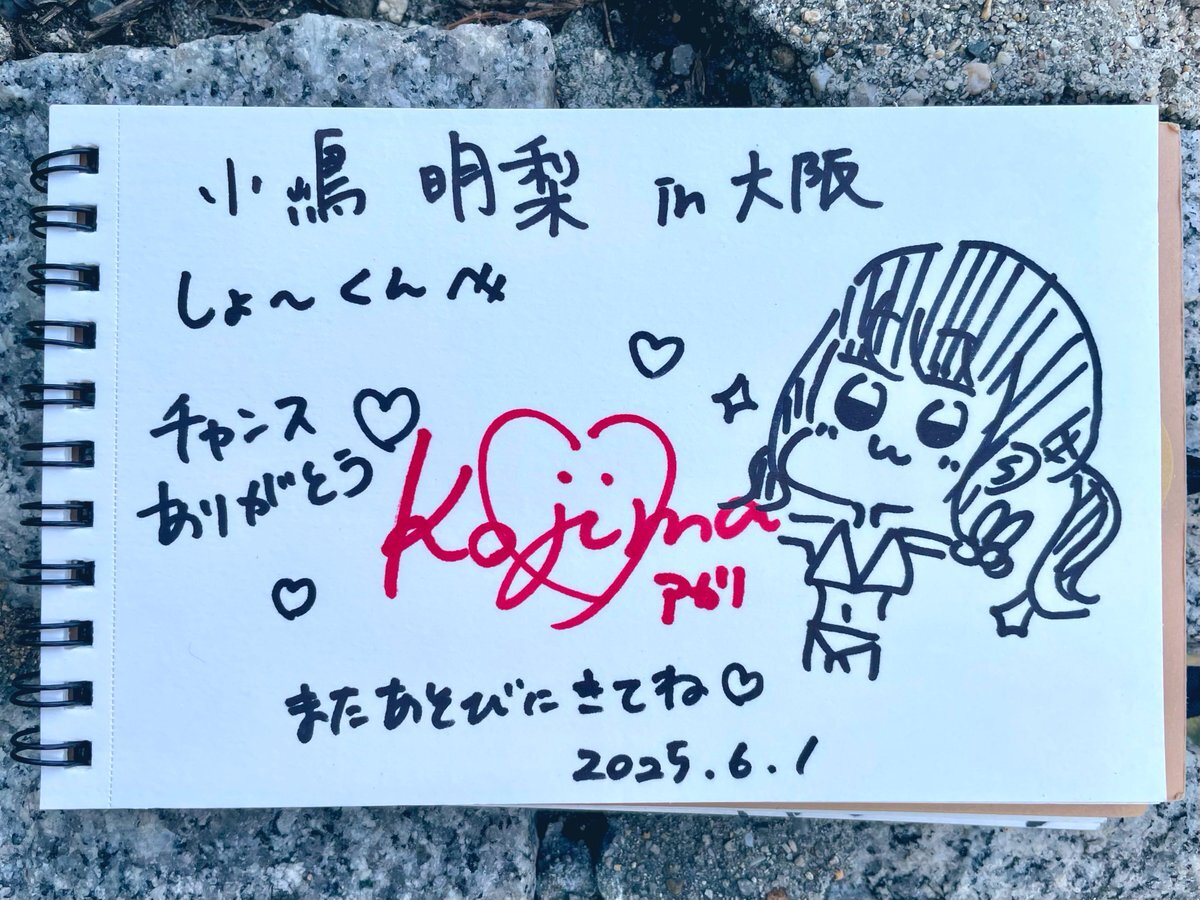 小嶋 明梨 in 大阪
しょ〜くんへ
チャンス
ありがとう
Kojima
アガリ
またあそびにきてね
2025.6.1